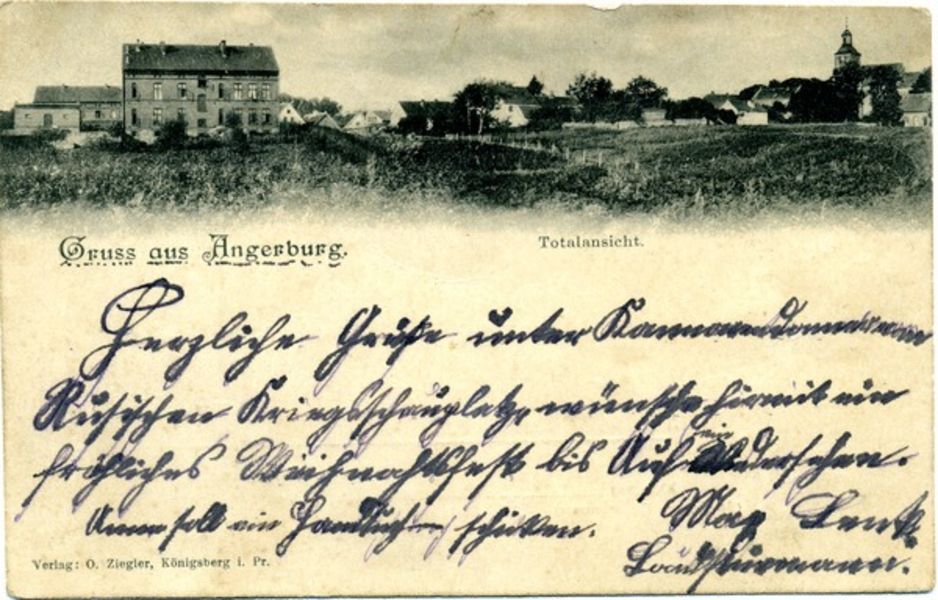 Gruss aus Angerburg.
Totalansicht.
Herzliche Grüße unter Kannonendonner vom
Rusischen Kriegsschauplatz, wünsche hirmit ein
fröhliches Weihnachtsfest bis Auf ein Widersehen.
Anna soll ein Handtuch schicken. Max Lenk
Landsturmann.
Verlag: O. Ziegler, Königsberg i. Pr.